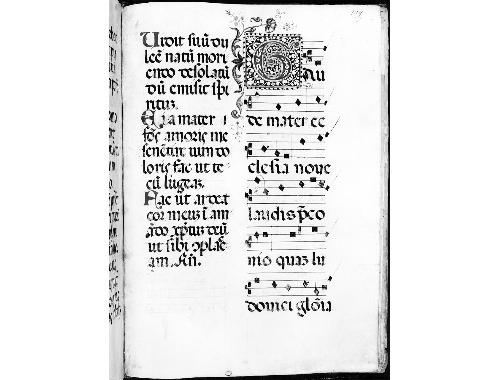 Uidit suũ dul
cẽ natũ mori
endo desolatũ
dũ emisit spi
ritus.
Eia mater i
fõs amoris me
sentire uim do
loris fac ut te
cũ lugeaz.
Fac ut ardeat
cor meuz ĩ am
ãdo xp̃tus deũ
ut sibi ɔplae
am. Am̃.
Gau
de mater ec
clesia noue
laudis p̃co
nio quaz lu
douici glõia